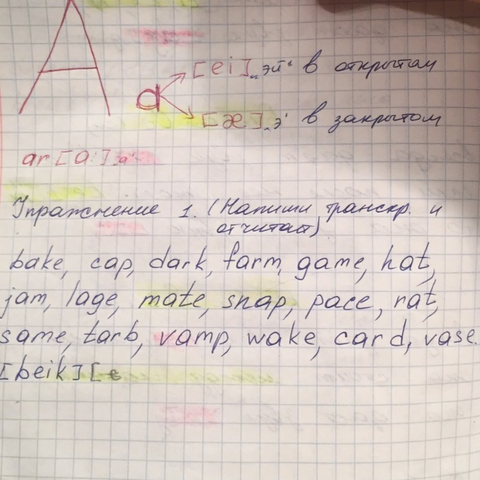 A
a [ei] „эй“ в открытом
[æ] „э“ в закрытом
ar [a:] „а“
Упражнение 1. (Напиши транскр. и
отчитай)
bake, cap, dark, farm, game, hat,
jam, lage, mate, snap, pace, rat,
same, tarb, vamp, wake, card, vase.
[beik] [